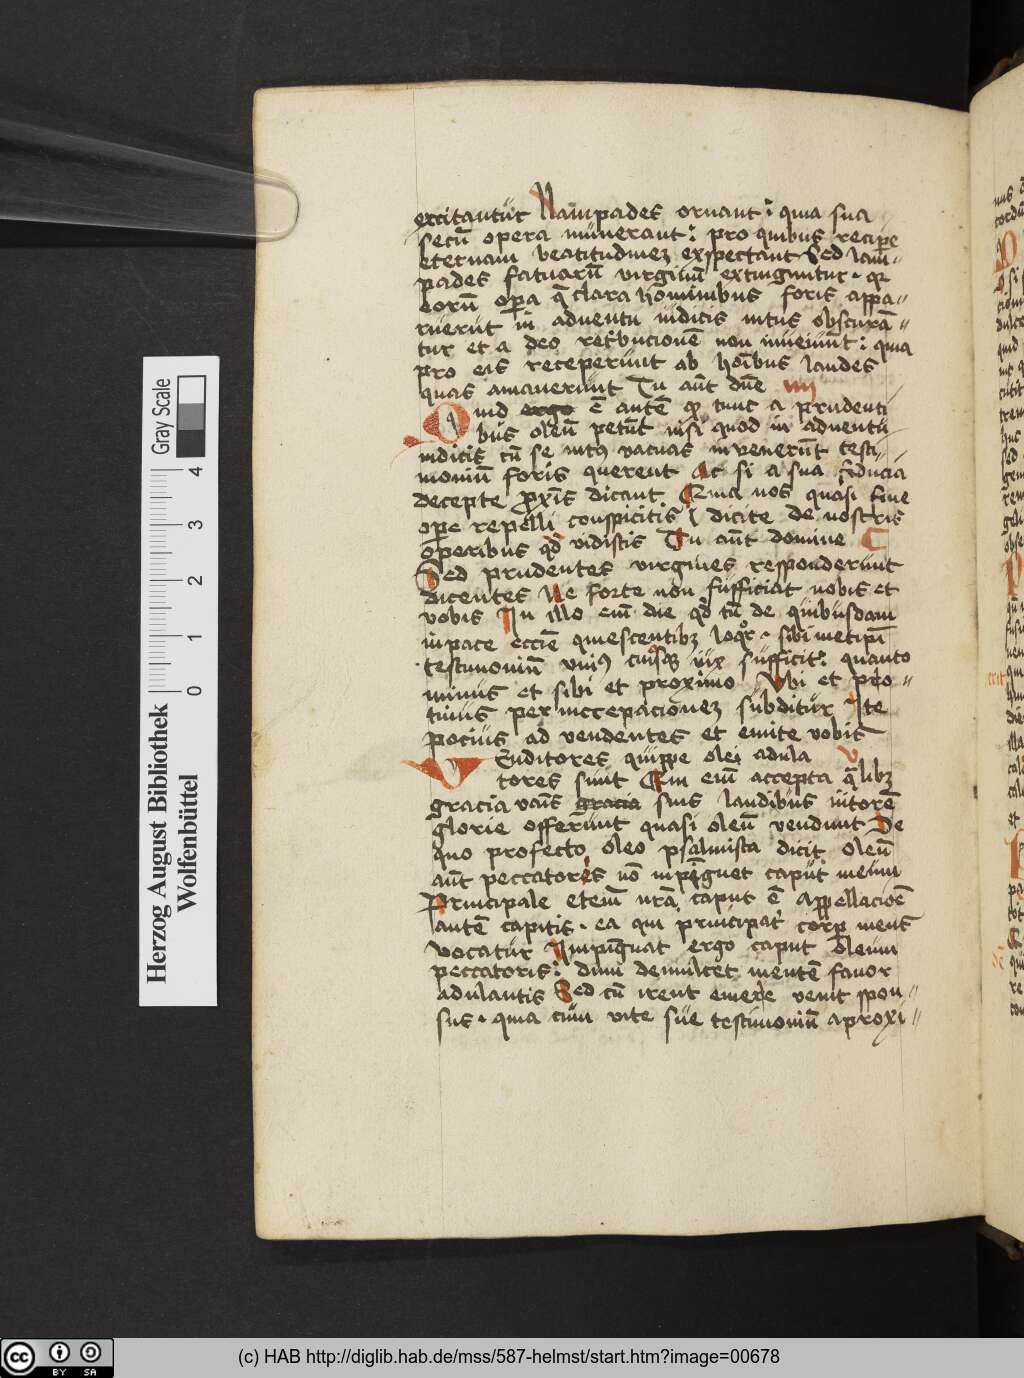 excitantur Lampades ornant : quia sua
secū opera numerant : pro quibus recipe
eternam beatitudinez expectant Sed lam=
pades fatuarū virginū extinguntur · qz
eorū opa q̄ clara hominibus foris appa=
ruerūt in aduentu iudicis intus obscurā=
tur et a deo retbucionē non inueiūt : quia
pro eis receperunt ab hoībus laudes
quas amauerunt Tu aūt dnē iiij
Quid ergo ē autē qz tunc a prudenti
bus oleū petūt nisi quod in aduentu
iudicis cū se intꝯ vacuas inuenerūt testi=
moniū foris querent Ac si a sua fiducia
decepte proxīs dicant Quia nos quasi sine
ope repelli conspicitis dicite de nostris
operibus qd vidistis Tu aūt domine
Sed prudentes virgines responderunt
dicentes Ne forte non sufficiat nobis et
vobis In illo eī die qd tū de quibusdam
in pace ecclīe quiescentibz loqr · sibimetipī
testimoniū vniꝯ cuiusqz vix sufficit : quanto
minus et sibi et proximo Vbi et pro=
tinus per increpacionez subditur Ite
pocius ad vendentes et emite vobis
Venditores quippe olei adula
tores sunt Qui eī accepta q̄libz
gracia vanīs gracia suis laudibus nitorē
glorie offerunt quasi oleū vendunt De
quo profecto oleo psalmista dicit Oleū
aūt peccatores nō inpīguet caput meum
Principale eteī nr̄ā caput ē Appellacioē
autē capitis · ea que principat corp mens
vocatur Inpīguat ergo caput Oleum
peccatoris : dum demulcet mentē fauor
adulantis Sed cū irent emere venit spon=
sus · quia cum vite sue testimoniū a proxi=
Herzog August Bibliothek
Wolfenbüttel
0 1 2 3 4
Gray Scale
(c) HAB http://diglib.hab.de/mss/587-helmst/start.htm?image=00678
cc BY SA